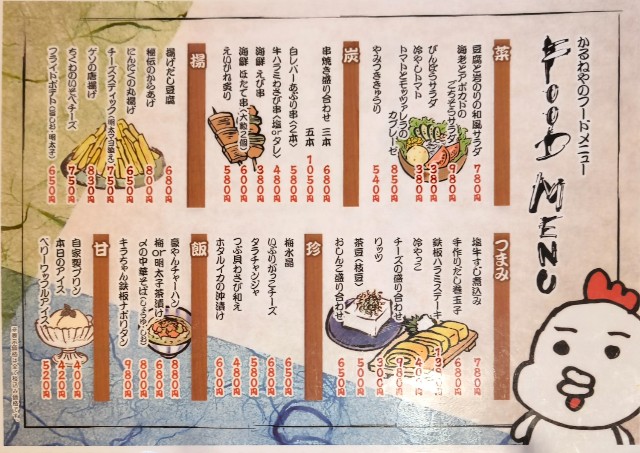 かるねやのフードメニュー
FOOD MENU
菜
豆腐と岩のりの和風サラダ 780円
海老とアボカドの
ごちそうサラダ 980円
びんぼうサラダ 380円
冷やしトマト 380円
トマトとモッツァレラの
カプレーゼ 850円
やみつききゅうり 540円
炭
串焼き盛り合わせ 三本 680円
五本 1050円
白レバーあぶり串(2本) 580円
牛ハラミわさび串(塩orタレ) 480円
海鮮 えび串 380円
海鮮 ほたて串(大粒2個) 600円
えいひれ炙り 580円
揚
揚げだし豆腐 680円
秘伝のからあげ 800円
にんにくの丸揚げ 650円
チーズスティック(明太マヨ添え) 750円
ゲソの唐揚げ 830円
ちくわのいそべチーズ 750円
フライドポテト 650円
つまみ
塩牛すじ煮込み 780円
手作りだし巻玉子 680円
鉄板ハラミステーキ
冷やっこ
チーズの盛り合わせ 980円
リッツ 300円
茶豆(枝豆) 500円
おしんこ盛り合わせ 650円
珍
梅水晶 650円
いぶりがっこチーズ 680円
タラチャンジャ 580円
つぶ貝わさび和え 480円
ホタルイカの沖漬け 600円
飯
豪やんチャーハン 880円
梅or明太子茶漬け 680円
〆の中華そば(しょうゆ・しお) 880円
キラちゃん鉄板ナポリタン 980円
甘
自家製プリン 400円
本日のアイス 420円
ベリーワッフルアイス 520円